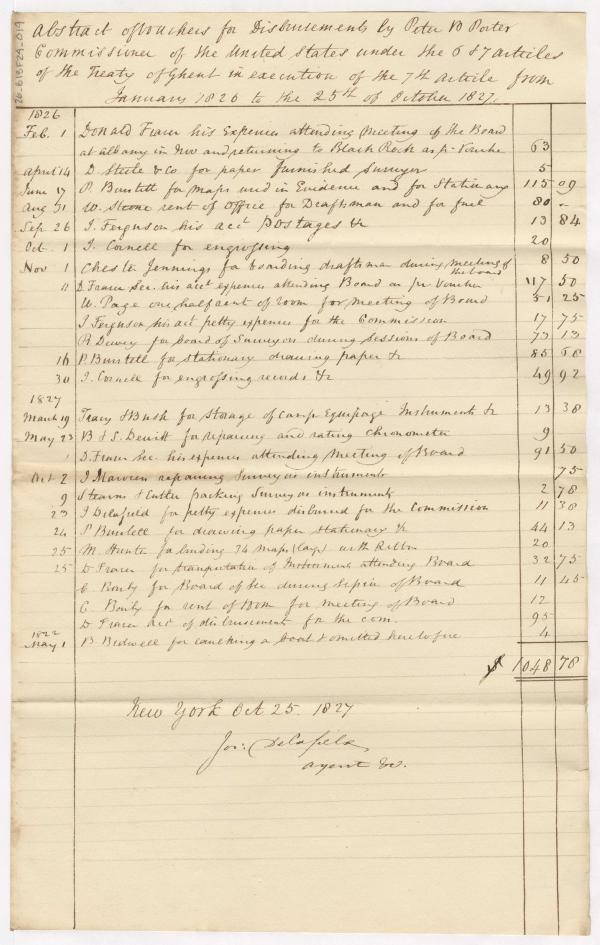 Abstract of vouchers for Disbursements by Peter B Porter
Commissioner of the United States under the 6 & 7 articles
of the Treaty of Ghent in execution of the 7th Article from
January 1826 to the 25th of October 1827.
1826
Feb. 1 Donald Fraser his Expenses attending Meeting of the Board
at albany in Nov and returning to Black Rock as pr Vouche 63
April 14 D Steele & Co for paper furnished Surveyor 5
June 17 P. Burtsell for Maps used in Evidence and for Stationary 115 09
Aug 31 W. rent of Office for Draftsman and for fuel 80 -
Sep. 26 J. Ferguson his act Postages &c 13 84
Oct. 1 J. Cornell for engrossing 20
Nov 1 Chester Jennings for boarding draftsman during meeting of the board 8 50
11 D. Fraser Sec. his act expenses attending Board as pr Voucher 117 50
W. Page one half rent of room for meeting of Board 51 25
J Ferguson his act petty expenses for the Commission 17 75
R Dewey for board of Surveyors during sessions of Board 73 13
16 P. Burtsell for stationary drawing paper &c 85 68
30 J. Cornell for engrossing records &c 49 92
1827
March 19 Tracy & Bush for Storage of camp Equipage Instruments &c 13 38
May 23 B & S. Dewitt for repairing and rating Chronometer 9
D. Fraser Sec. his expenses attending Meeting of Board 91 50
Oct 2 J repairing Surveyors instrument 75
9 Stearns & Cutler packing Surveyors instruments 2 78
23 J Delafield for petty expenses disbursed for the Commission 11 38
24 P Burtsell for drawing paper stationary &c 44 13
25 M. Hunter for binding 34 maps (large) with Ribbn 20
25 D Fraser for transportation of Instruments attending Board 32 75
C. for Board of Sec during Session of Board 11 45
C. for rent of Room for meeting of Board 12
D. Fraser act of disbursements for the com. 95
1822
May 1 B. Bidwell for caulking a boat & omitted heretofore 4
$ 1048 78
New York Oct 25. 1827
Jos: Delafield
agent &c.